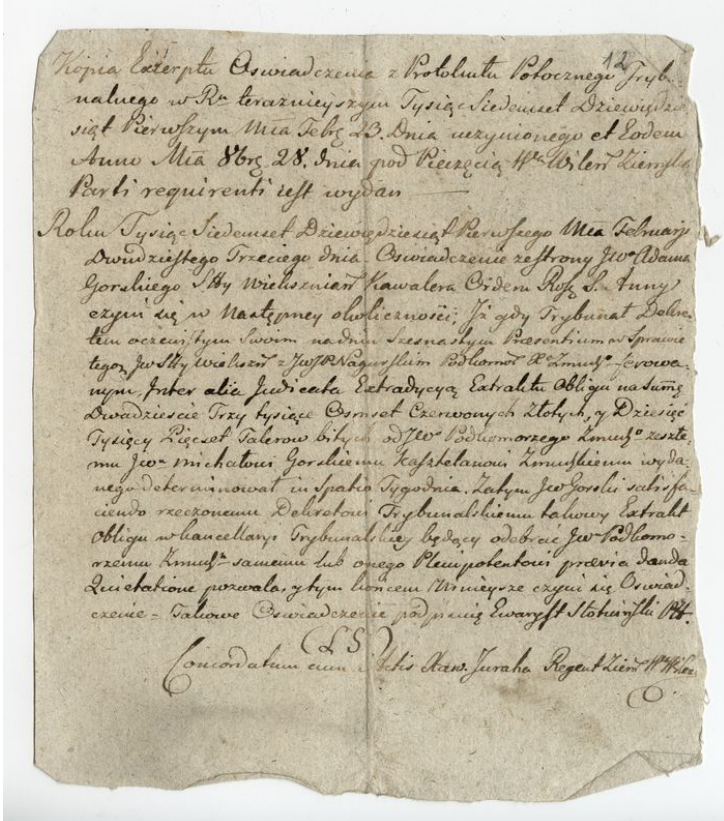 12
Kopia Exzerptu Oswiadczenia z Protokułu Potocznego Tryb-
nalnego w Ru teraznieyszym Tysiąc Siedemset Dziewiędzie-
siąt Pierwszym Mca Febrę 23. Dnia uczynionego et Eodem
Anno Mca 8brę 28. dnia pod Pieczęcią Wa Wileń Ziemską
Parti requirenti iest wydan
Roku Tysiąc Siedemset Dziewiędziesiąt Pierwszego Mca Februarij
Dwudziestego Trzeciego dnia. Oswiadczenie ze strony Jwo Adama
Gorskiego Stty Wieksznian Kawalera Orderu S. Anny
czyni się w Następney okoliczności; Iż gdy Trybunał Dekre-
tem oczewistym Swoim na dniu Szesnastym Praesentium w Sprawie
tegoż Jw Stty Wieksz z Jw JP Nagurskim Podkomor Xa Zmudz ferowa-
nym, Inter alia Judicata Extradycyą Extraktu Obligu na Sumę
Dwadziescie Trzy tysiące Osmset Czerwonych Złotych, y Dziesięć
Tysięcy Pięcset Talerow bitych od Jwo Podkomorzego Zmudzo zeszłe-
mu Jwu Michałowi Gorskiemu Kasztelanowi Zmudzkiemu wyda-
nego determinował in Spatio Tygodnia. Zatym Jw Gorski satisfa-
ciendo rzeczonemu Dekretowi Trybunalskiemu takowy Extrakt
Obligu w kancellaryi Trybunalskiey będący odebrać Jwu Podkomo-
rzemu Zmudzu samemu lub onego Plenipotentowi praevia danda
Quietatione pozwala, y tym końcem Ninieysze czyni się Oswiad-
czenie - Takowe Oswiadczenie podpisuię Ewaryst
(LS)
Concordatum cum Actis Xaw. Juraha Regent Ziem Wa Wileń